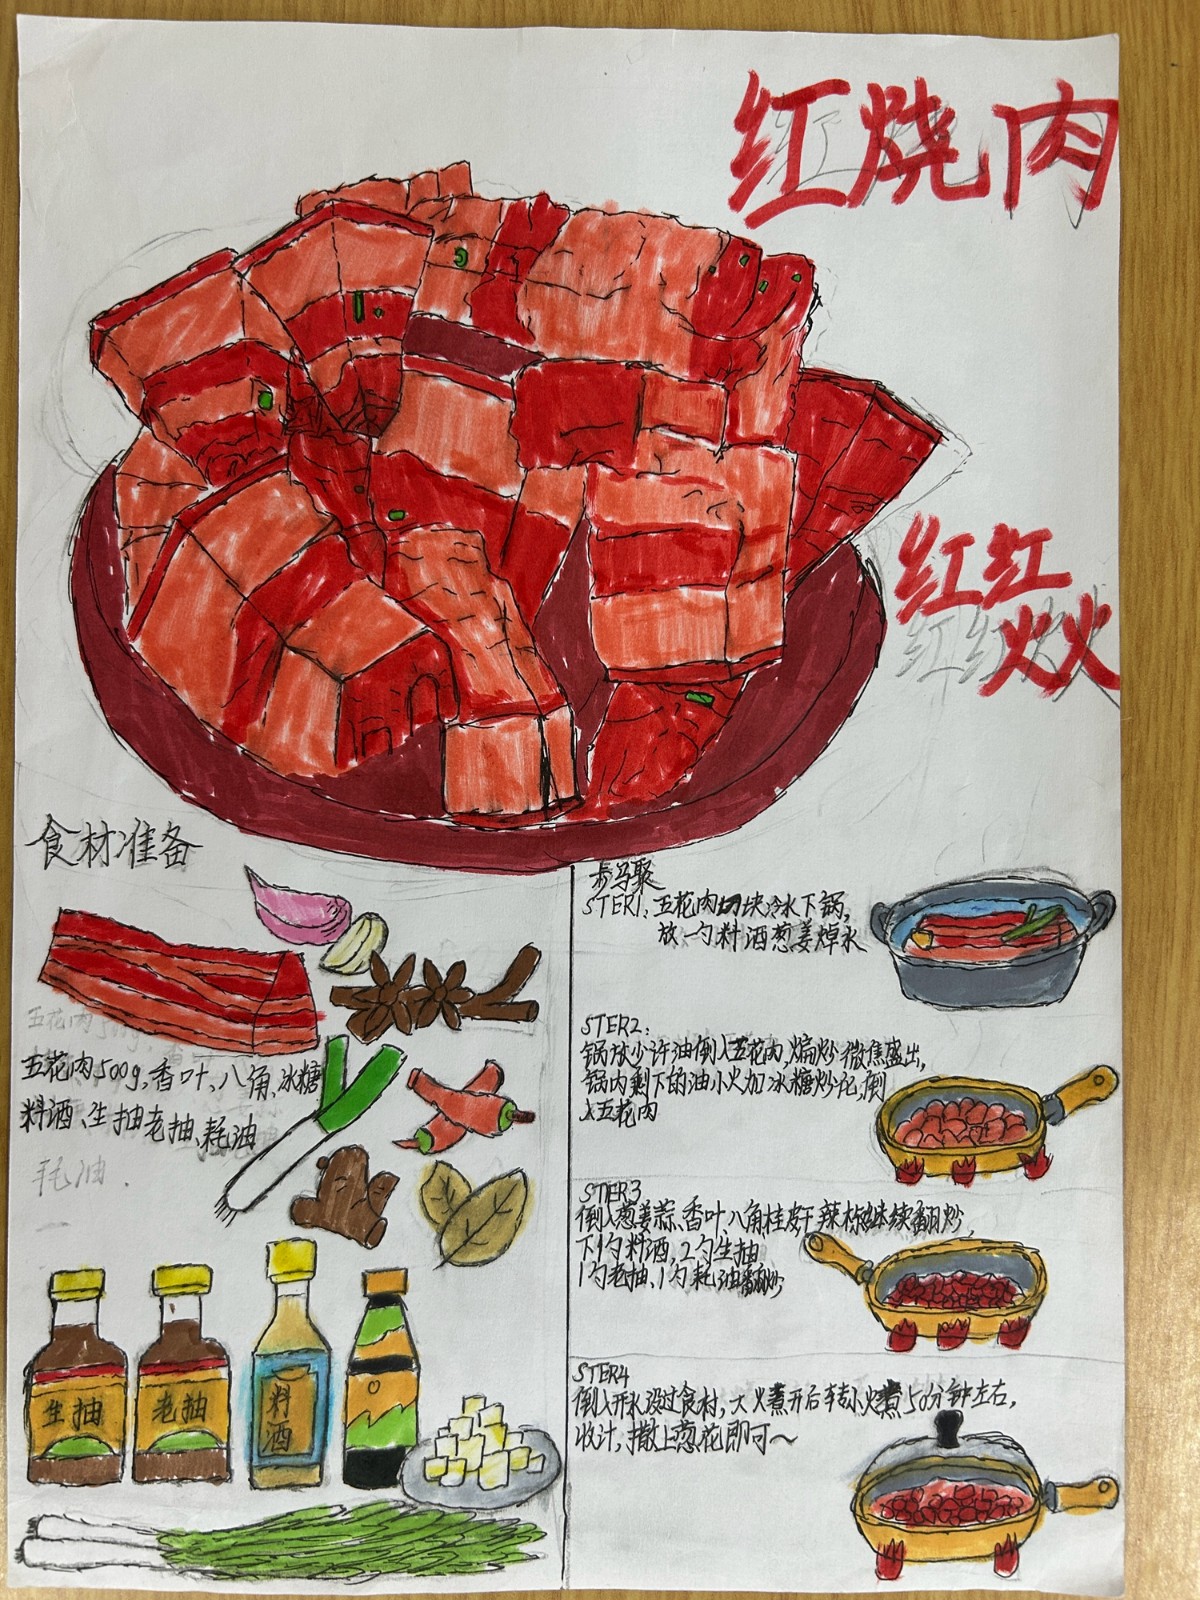 红烧肉
红红
火火
食材准备
五花肉500g,香叶、八角、冰糖
料酒、生抽老抽、耗油
耗油.
生抽
老抽
料酒
步骤
STER1、五花肉切块冷水下锅,
放一勺料酒葱姜焯水
STER2:
锅放少许油倒入五花肉,煸炒微焦盛出,
锅内剩下的油小火加冰糖炒化,倒
入五花肉
STER3
倒入葱姜蒜、香叶、八角桂皮干辣椒继续翻炒,
下1勺料酒,2勺生抽,
1勺老抽、1勺耗油翻炒
STER4
倒入开水没过食材,大火煮开后转小火煮50分钟左右,
收汁,撒上葱花即可~